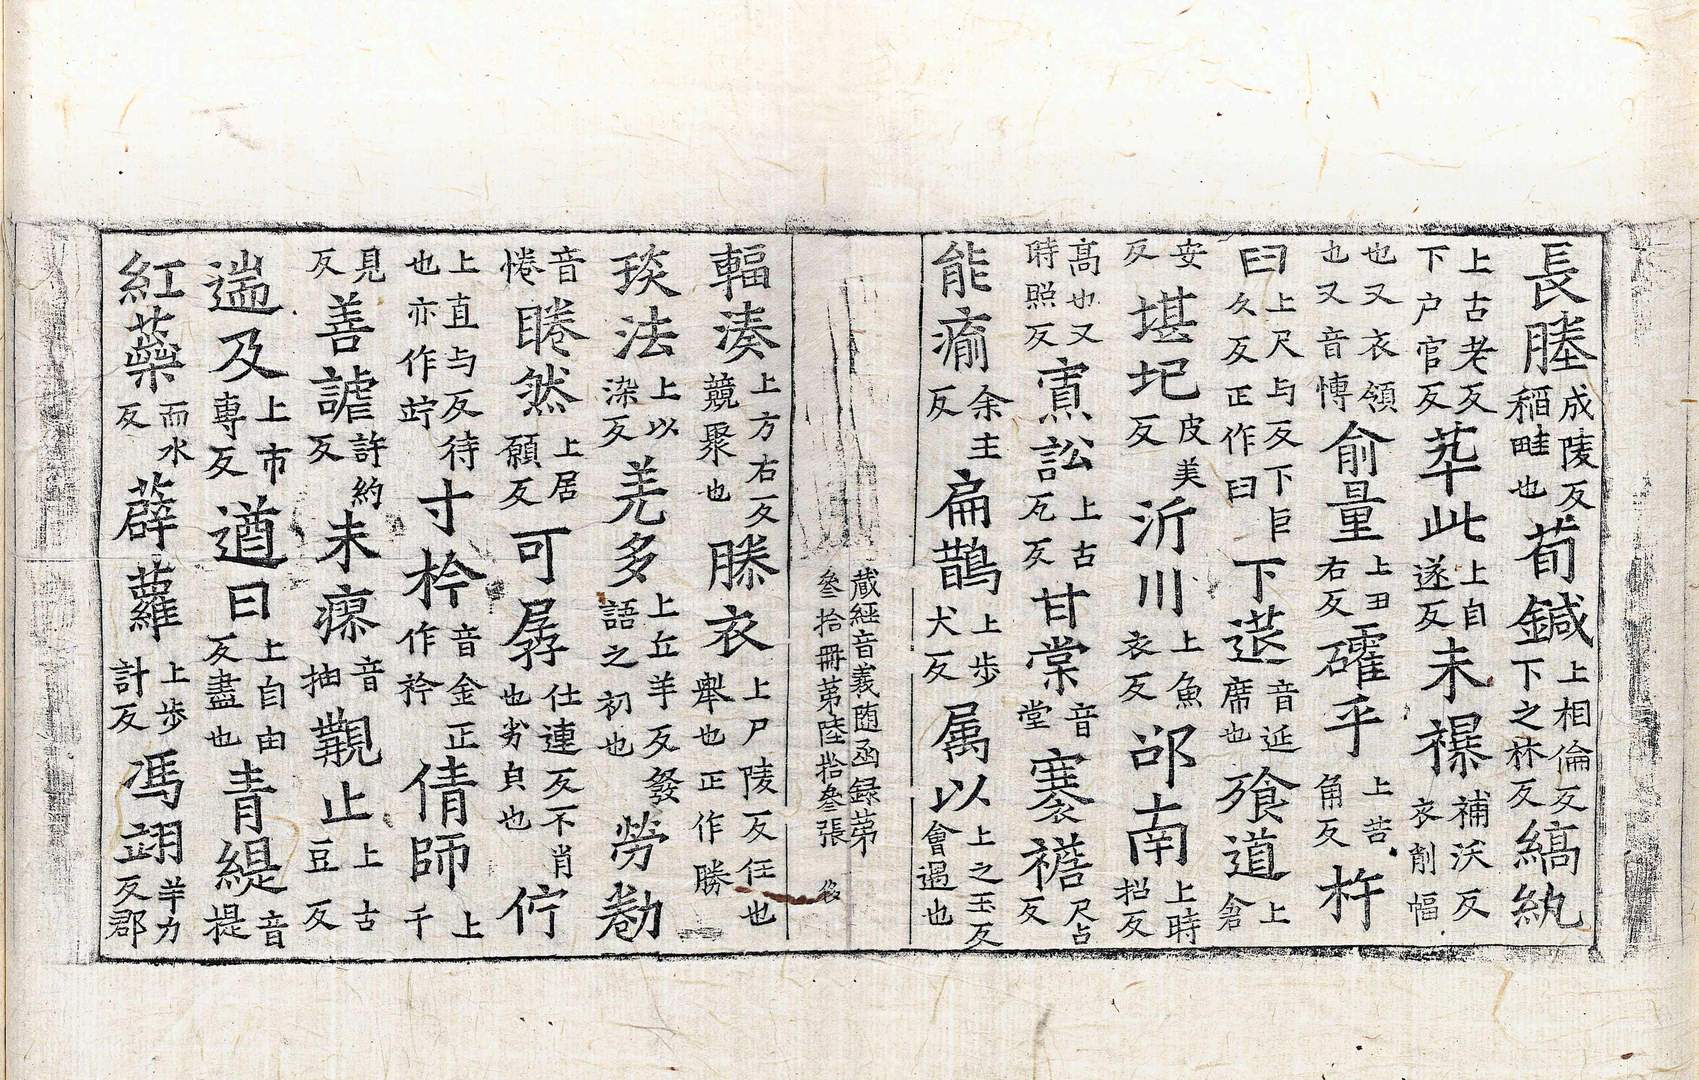 長塍成陵反稻畦也荀鍼上相倫反下之林反縞紈
上古老反下户官反茟此上自遂反未襮補沃反衣削幅
也又衣領也又音愽俞量上丑右反礭乎上苦角反杵
臼上尺与反下巨久反正作臼下莚音延席也飱道上倉
安反堪圯皮美反沂川上魚衣反邵南上時招反
高也又時照反寡訟上古瓦反甘棠音堂褰襜尺占反
能瘉余主反扁鵲上歩犬反属以上之玉反會遇也
藏經音義随函録苐
叄拾冊苐陸拾叄張
輻湊上方右反競聚也賸衣上尸陵反任也舉也正作勝
琰法上以染反羌多上丘羊反發語之初也勞勌
音惓睠然上居願反可孱仕連反不肖也劣皃也佇
上直与反待也亦作竚寸枔音金正作衿倩師上千
見反善謔許約反未瘳音抽觀止上古豆反
遄及上市專反遒曰上自由反盡也青緹音提
紅蘂而水反薜蘿上歩計反馮翊羊力反郡